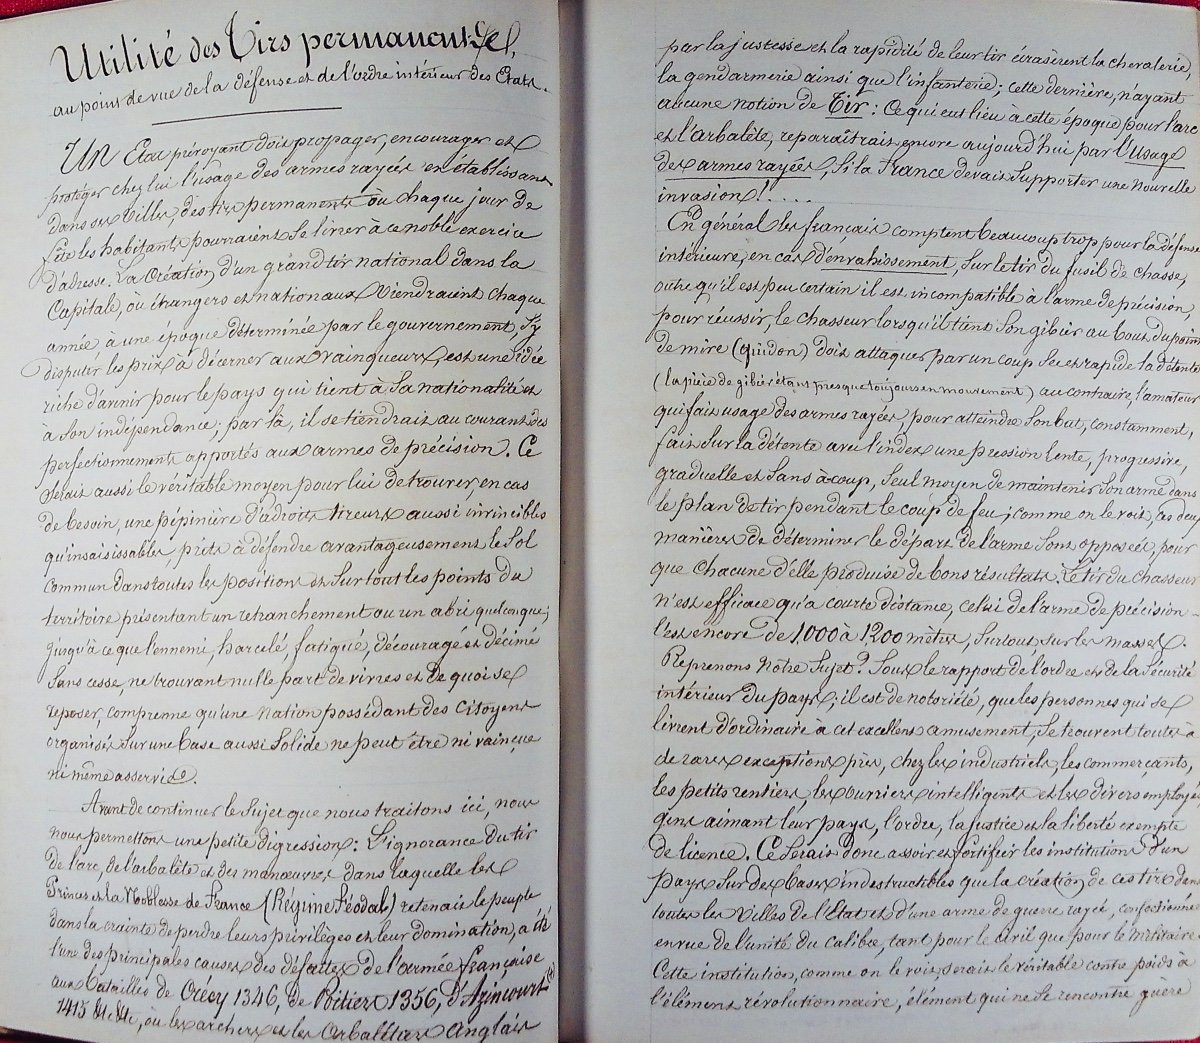 Utilité des Tirs permanents
au point de vue de la défense et de l'ordre intérieur des Etats.
UN Etat prévoyant doit propager, encourager et
protéger chez lui l'usage des armes rayées en établissant
dans ses villes des tirs permanents où chaque jour de
fête les habitants pourraient se livrer à ce noble exercice
d'adresse. La Création d'un grand tir national dans la
Capitale, où étrangers et nationaux viendraient chaque
année à une époque déterminée par le gouvernement, s'y
disputer les prix à décerner aux vainqueurs est une idée
riche d'avenir pour le pays qui tient à sa nationalité et
à son indépendance; par là, il se tiendrait au courant des
perfectionnements apportés aux armes de précision. Ce
serait aussi le véritable moyen pour lui de trouver, en cas
de besoin, une pépinière d'adroits tireurs aussi invincibles
qu'insaisissables, prêts à défendre avantageusement le sol
commun dans toutes les positions et sur tout les points du
territoire présentant un retranchement ou un abri quelconque;
jusqu'à ce que l'ennemi, harcelé, fatigué, découragé et décimé
sans cesse, ne trouvant nulle part de vivres et de quoi se
reposer, comprenne qu'une Nation possédant des Citoyens
organisés sur une base aussi solide ne peut être ni vaincue
ni même asservie.
Avant de continuer le sujet que nous traitons ici, nous
nous permettons une petite digression: L'ignorance du tir
de l'arc, de l'arbalète et des manœuvres dans laquelle les
Princes et la Noblesse de France (Régime Féodal) retenait le peuple
dans la crainte de perdre leurs privilèges et leur domination, a été
l'une des principales causes des défaites de l'armée française
aux batailles de Crécy 1346, de Poitiers 1356, d'Azincourt (+)
1415 &c &c, où les archers et les Arbalétriers Anglais
par la justesse et la rapidité de leur tir écrasèrent la chevalerie,
la gendarmerie ainsi que l'infanterie; cette dernière, n'ayant
aucune notion de Tir: Ce qui eut lieu à cette époque pour l'arc
et l'arbalète, reparaîtrait encore aujourd'hui par l'Usage
des armes rayées, si la France devait supporter une nouvelle
invasion!.....
En général les français comptent beaucoup trop pour la défense
intérieure, en cas d'envahissement, sur le tir du fusil de chasse,
outre qu'il est peu certain il est incompatible à l'arme de précision,
pour réussir, le chasseur lorsqu'il tient son gibier au bout du point
de mire (guidon) doit attaquer par un coup sec et rapide la détente
(la pièce de gibier étant presque toujours en mouvement) au contraire, l'amateur
qui fait usage des armes rayées, pour atteindre son but, constamment,
fait sur la détente avec l'index une pression lente, progressive,
graduelle et sans à coup, seul moyen de maintenir son arme dans
le plan de tir pendant le coup de feu; comme on le voit, ces deux
manières de déterminer le départ de l'arme sont opposées, pour
que chacune d'elle produise de bons résultats. Le tir du chasseur
n'est efficace qu'à courte distance, celui de l'arme de précision
l'est encore de 1000 à 1200 mètres, surtout sur les masses.
Reprenons notre sujet. Sous le rapport de l'ordre et de la sécurité
intérieur du pays; il est de notoriété, que les personnes qui se
livrent d'ordinaire à cet excellent amusement, se trouvent toutes à
de rares exceptions près, chez les industriels, les commerçants,
les petits rentiers, les ouvriers intelligents et les divers employés
gens aimant leur pays, l'ordre, la justice et la liberté exempte
de licence. Ce serait donc assoir et fortifier les institutions d'un
pays sur des bases indestructibles que la création de ces tirs dans
toutes les villes de l'Etat et d'une arme de guerre rayée, confectionnée
en vue de l'unité du calibre, tant pour le civil que pour le militaire.
Cette institution, comme on le voit, serait le véritable contre poids à
l'élément révolutionnaire, élément qui ne se rencontre guère